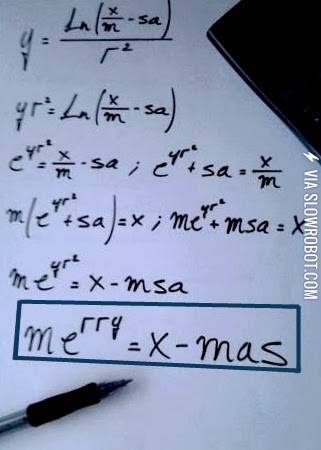 y = Ln(x/m - sa) / r²
yr² = Ln(x/m - sa)
e^yr² = x/m - sa ; e^yr² + sa = x/m
m(e^yr² + sa) = x ; me^yr² + msa = x
me^yr² = x - msa
me^rry = x - mas
VIA SLOWROBOT.COM